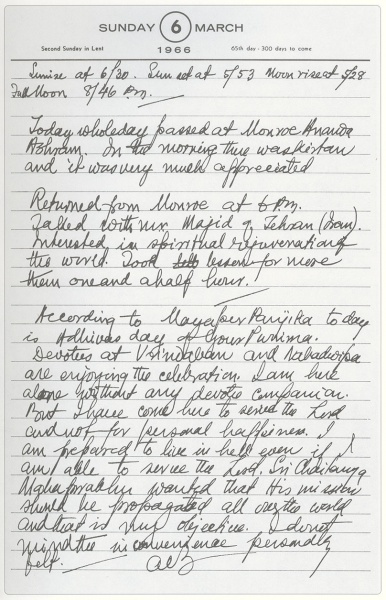 SUNDAY 6 MARCH
Second Sunday in Lent 1966 65th day - 300 days to come
Sunrise at 6/30. Sunset at 5/53 Moon rise at 5/28
Full Moon 8/46 P.m.
Today wholeday passed at Monroe Ananda
Ashram. In the morning there was kirtan
and it was very much appreciated
Returned from Monroe at 6 P.m.
Talked with mr. Majid of Tehran (Iran).
Interested in spiritual rejuvenation of
the world. Took lesson for more
them one and a half hour.
According to Mayapur Panjika today
is Adhivas day of Gour Purnima.
Devotees at Vrindaban and Nabadwipa
are enjoying the celebration. I am here
alone without any devotee companion.
But I have come here to serve the Lord
and not for personal happiness. I
am prepared to live in hell even if I
am able to serve the Lord. Sri Chaitanya
Mahaprabhu wanted that His mission
should be propagated all over the world
and that is my objective. I do not
mind the inconvenience personally
felt.